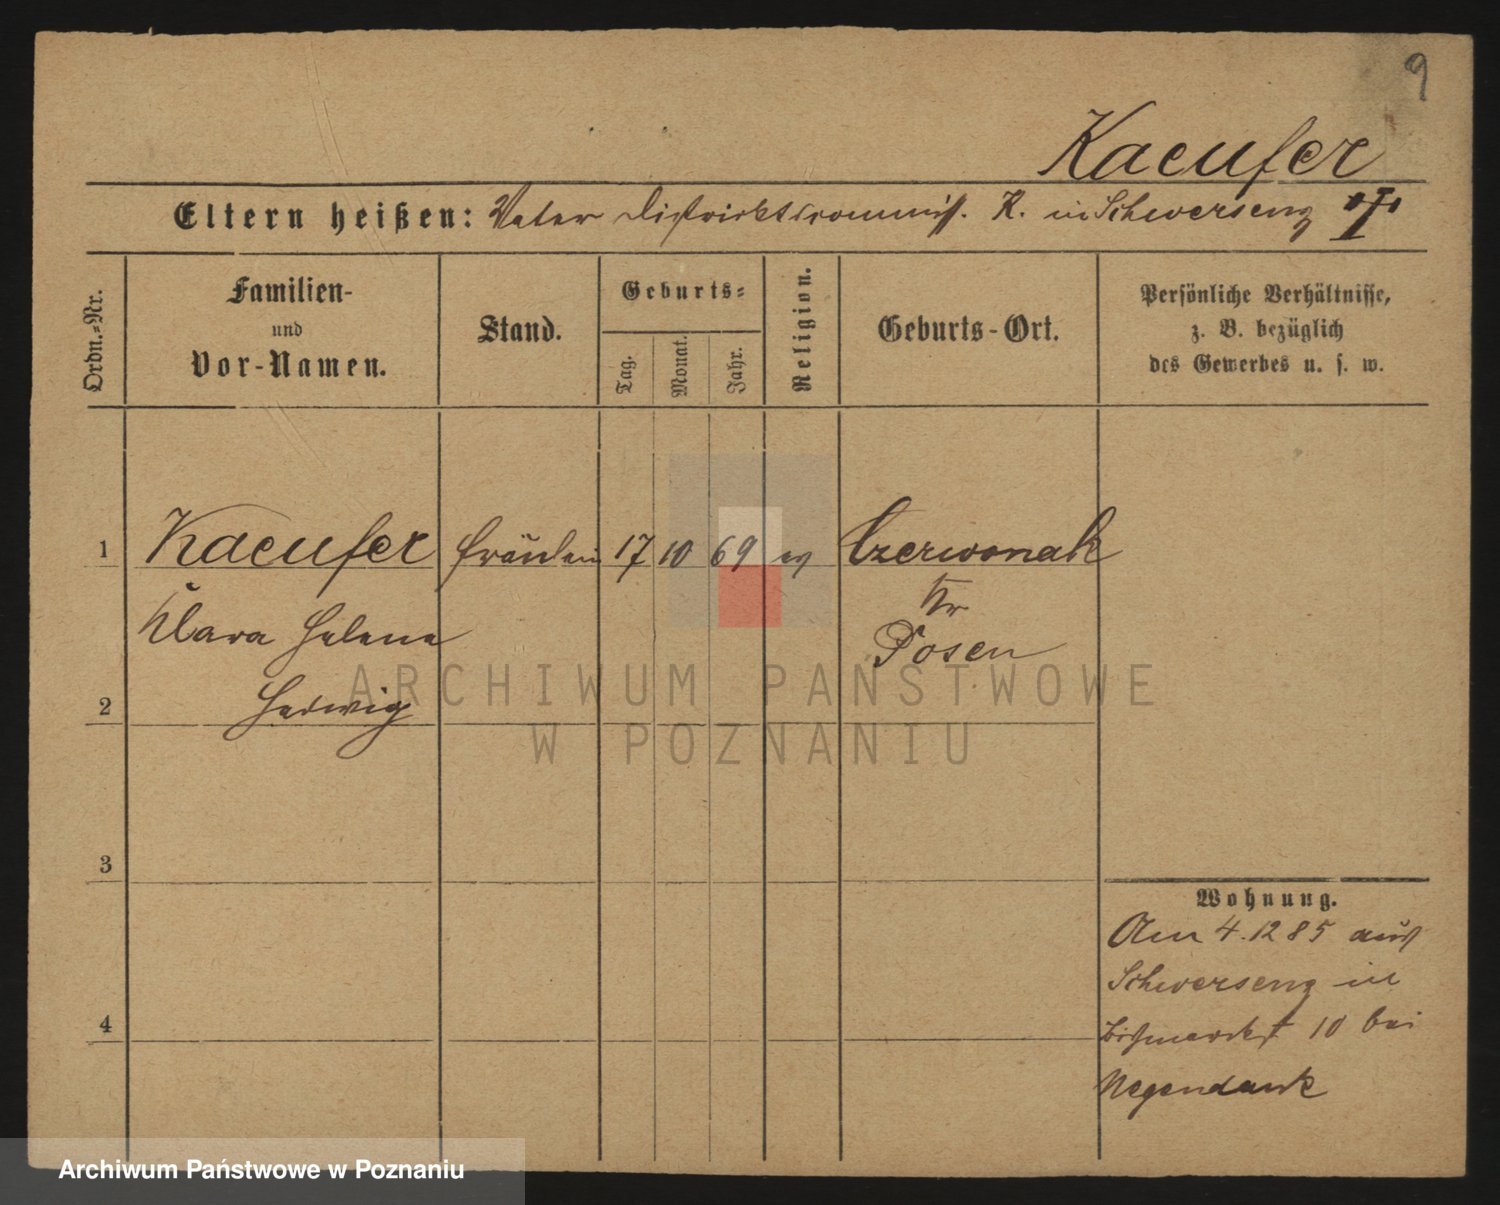 9
Kaeufer
Eltern heißen: Vater Distriktscommiss. K. in Schwersenz
Ordn.-Nr.
Familien-
und
Vor-Namen.
Stand.
Geburts-
Tag.
Monat.
Jahr.
Religion.
Geburts-Ort.
Persönliche Verhältnisse,
z. B. bezüglich
des Gewerbes u. s. w.
1 Kaeufer Fräulein 17 10 69 ev Czerwonak
Klara Helene Kr
Hedwig Posen
2
3
4
Wohnung.
Am 4.12 85 aus
Schwersenz in
Bismarckst 10 bei
Negendank
ARCHIWUM PAŃSTWOWE
W POZNANIU
Archiwum Państwowe w Poznaniu